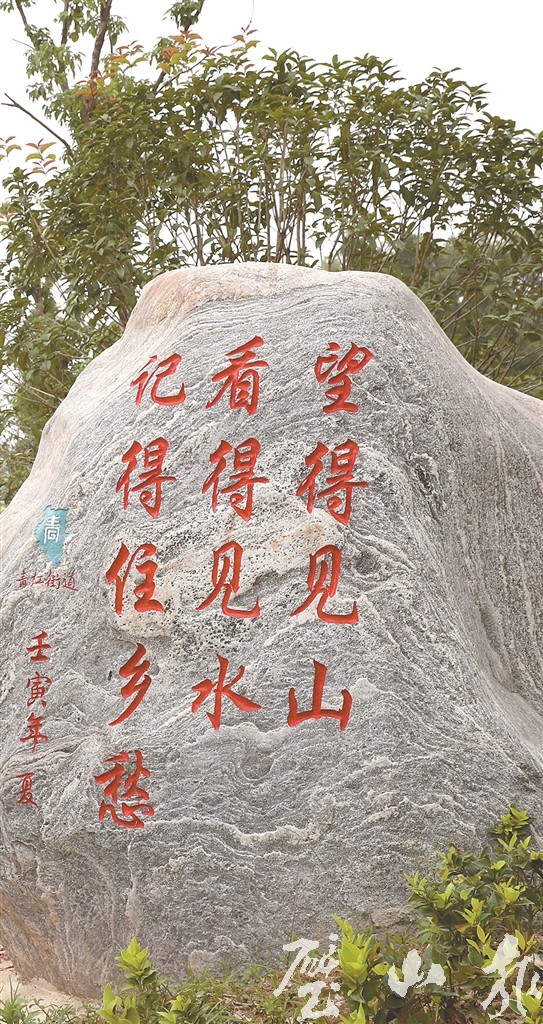 望得见山
看得见水
记得住乡愁
青
青杠街道
壬寅年夏
璧山报